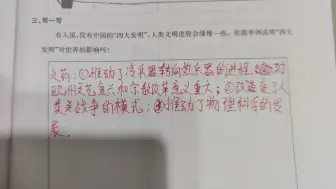 三、写一写
有人说,没有中国的“四大发明”,人类文明进程会缓慢一些。你能举例说明“四大
发明”对世界的影响吗?
火药:①推动了冷兵器转向热兵器的进程,对
欧洲文艺复兴和宗教改革意义重大;②改变了人
类战争的模式;③推动了物理科学的发
展。